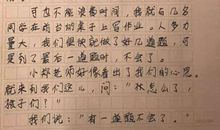 可为不浪费时间，我就与几名
同学在前台的桌子上写作业。人多力
量大，我们很快就做了好几道题，可
是到了最后一道题时，不会了。
小郑老师好像看出了我们的心思，
就来到我们这儿，问：“怎么了，
孩子们？”
我们说：“有一道题不会了。”